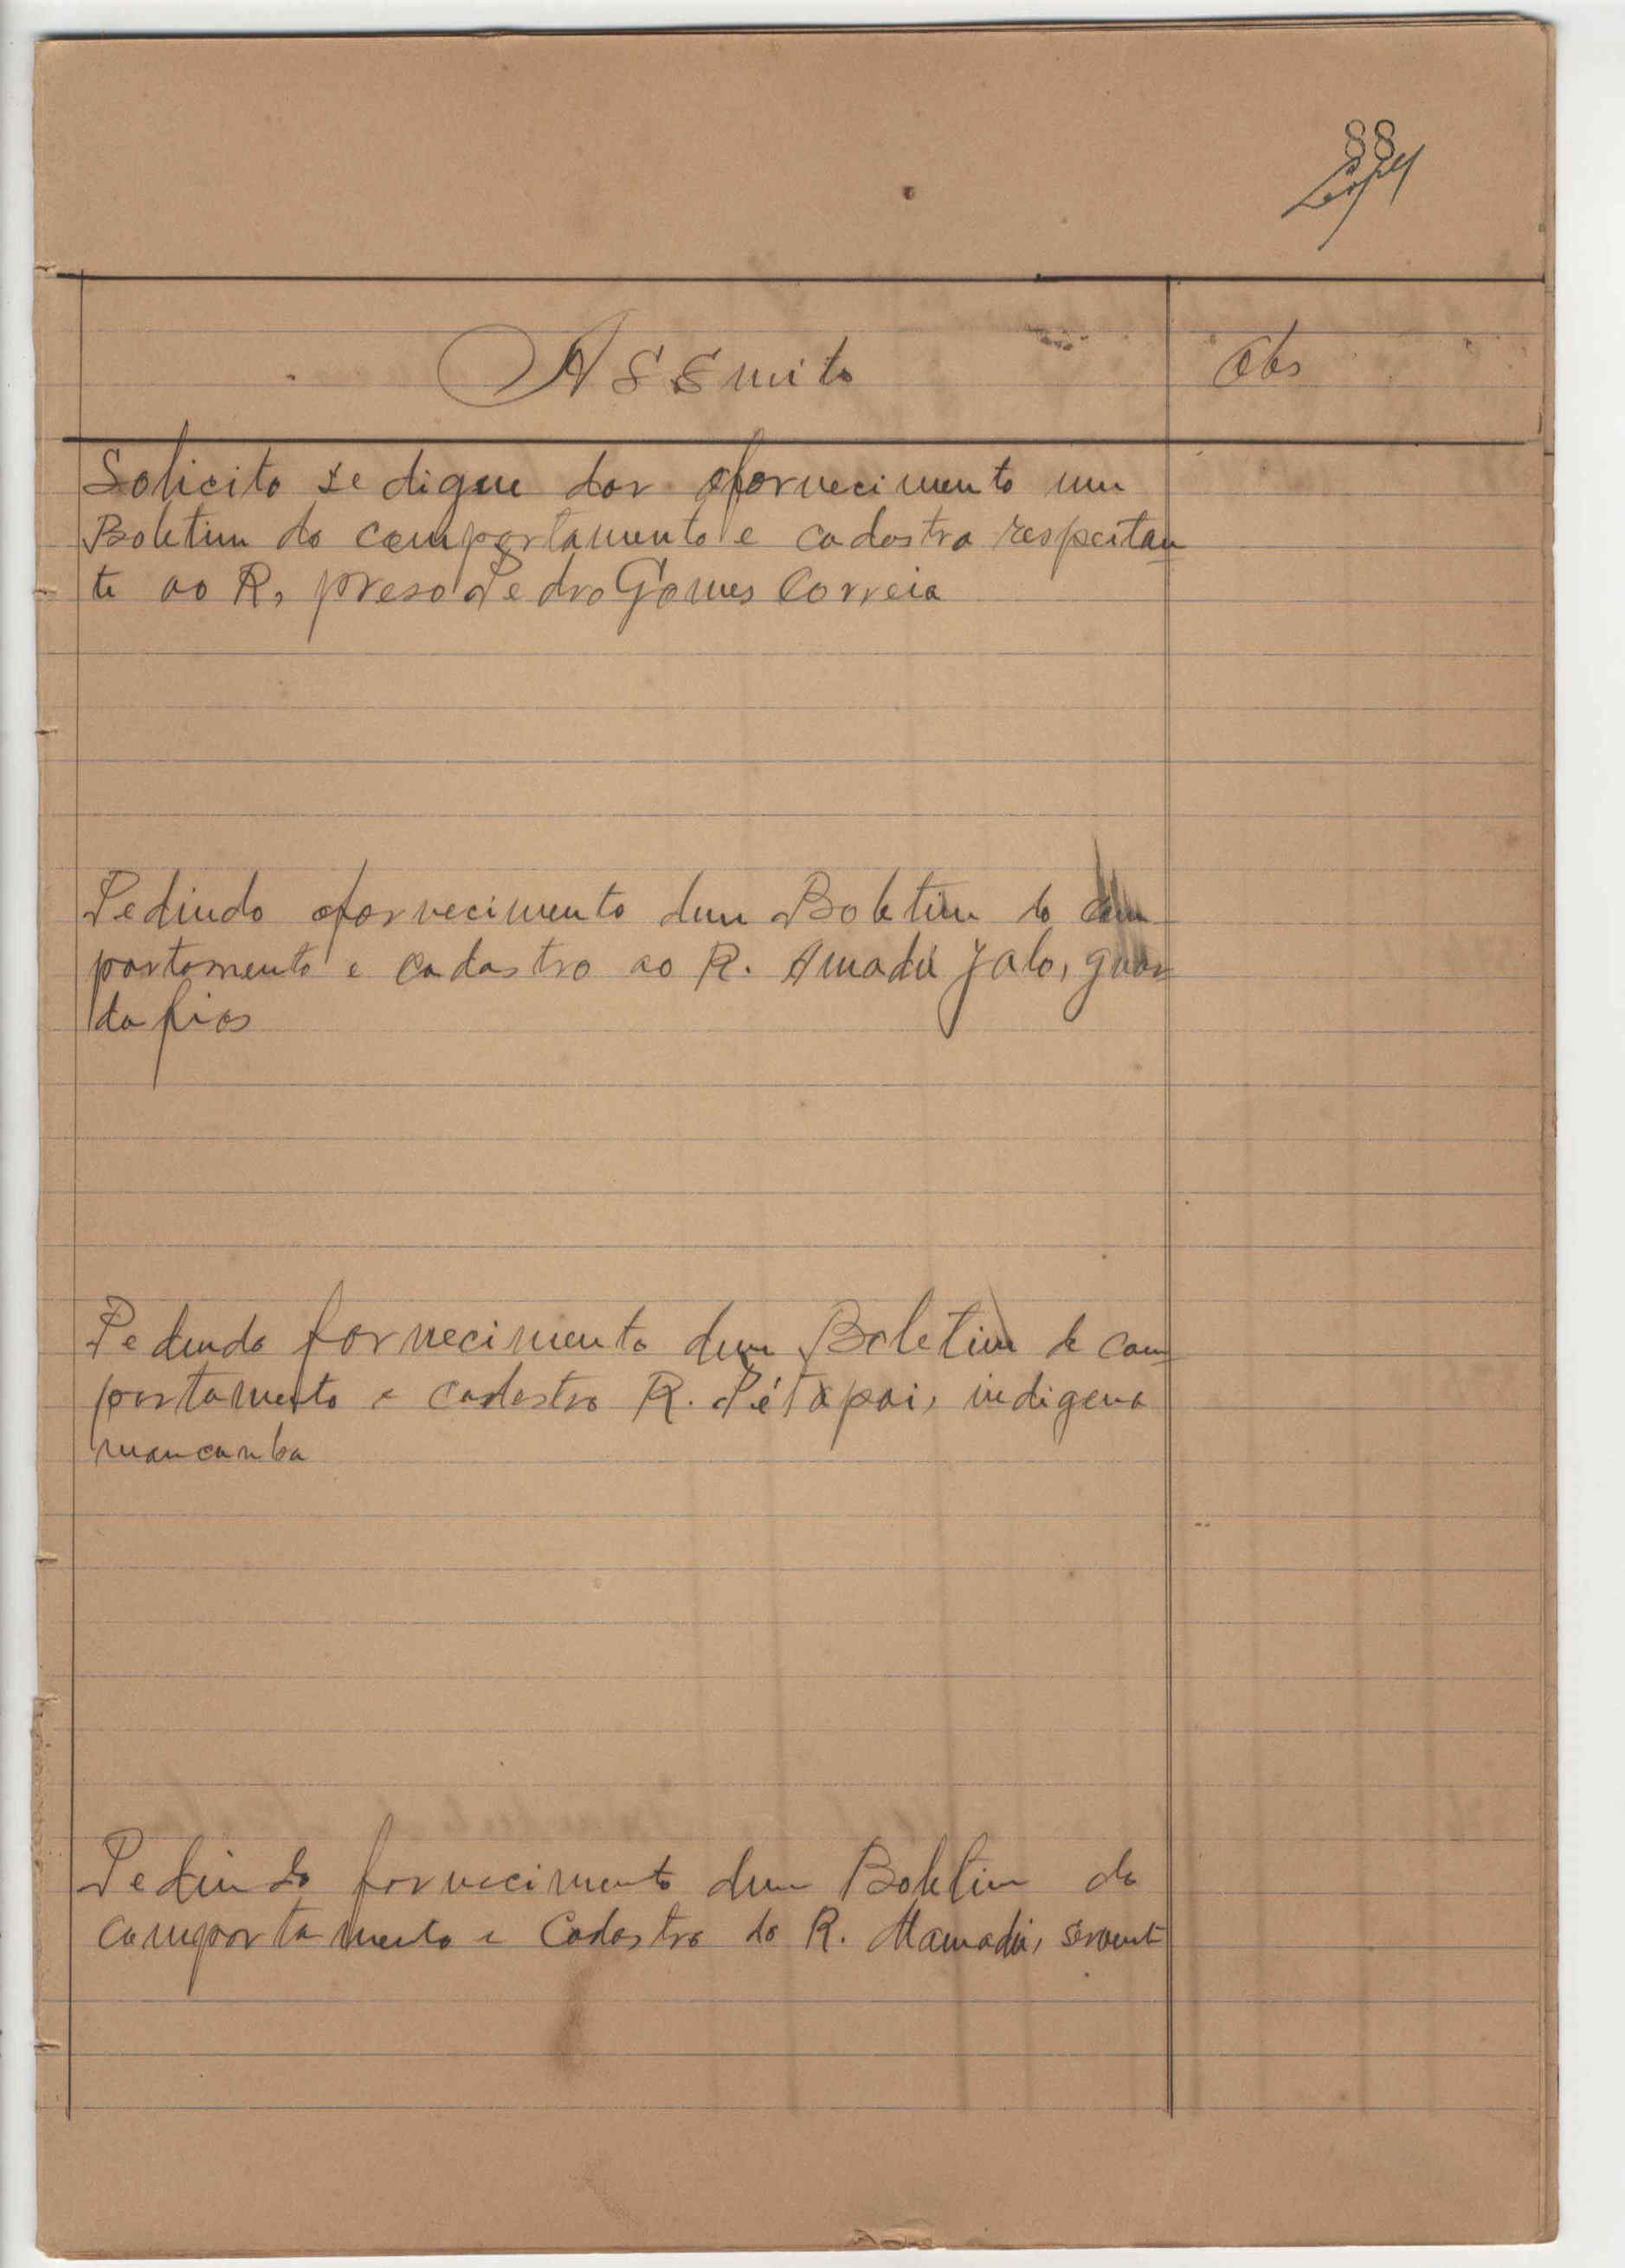 88
Lopes
Assunto
Obs
Solicito se digne dar ofornecimento um
Boletim do comportamento e cadastro respeitan
te ao R, preso Pedro Gomes Correia
Pedindo ofornecimento dum Boletim do com
portamento e cadastro ao R. Amadú Jalo, guar
da fios
Pedindo fornecimento dum Boletim de com
portamento e cadastro R. Pétapai, indigena
mancanba
Pedindo fornecimento dum Boletim do
comportamento e Cadastro do R. Mamadú, servente